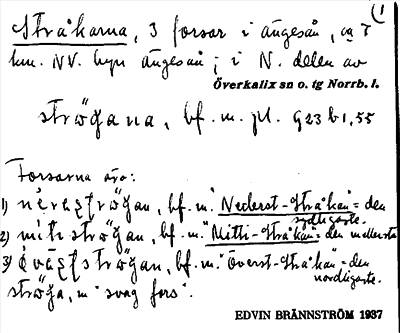 (1
Stråkarna, 3 forsar i ängesån, ca 7
km. NV. byn ängesån; i N. delen av
Överkalix sn o. tg Norrb. l.
strö̀gana, bf. m. pl. g23 b1,55
Forsarna äro:
1) nèraströgan, bf. m. "Nederst-Stråkan" = den
sydligaste.
2) mìtiströgan, bf. m. "Mitti-Stråkan" = den mellersta
3) òvastströgan, bf. m. "Överst-Stråkan" = den
nordligaste.
ströga, m "svag fors".
EDVIN BRÄNNSTRÖM 1937